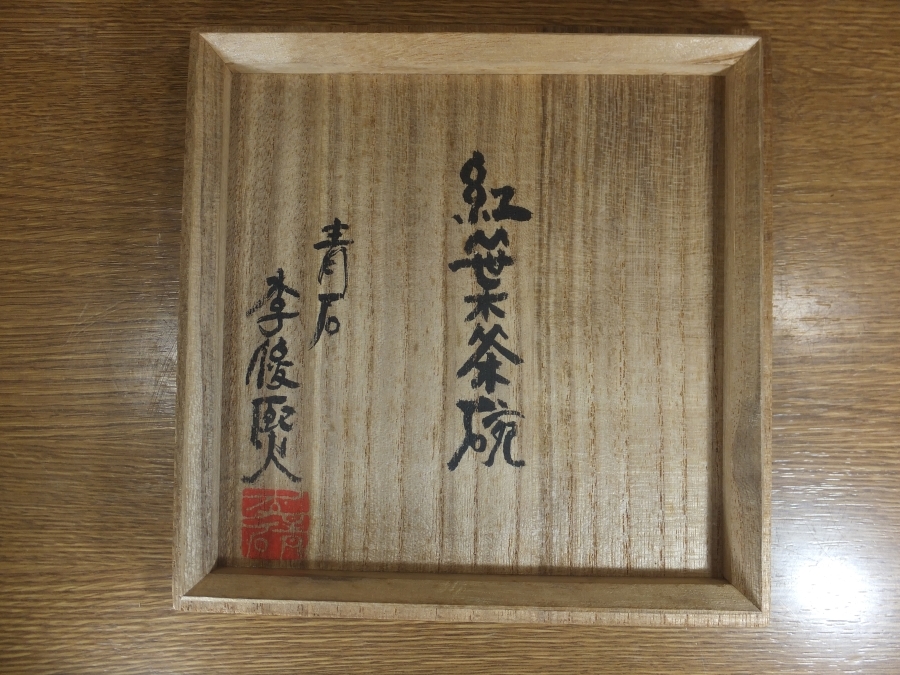 紅葉茶碗
青石
李俊熙